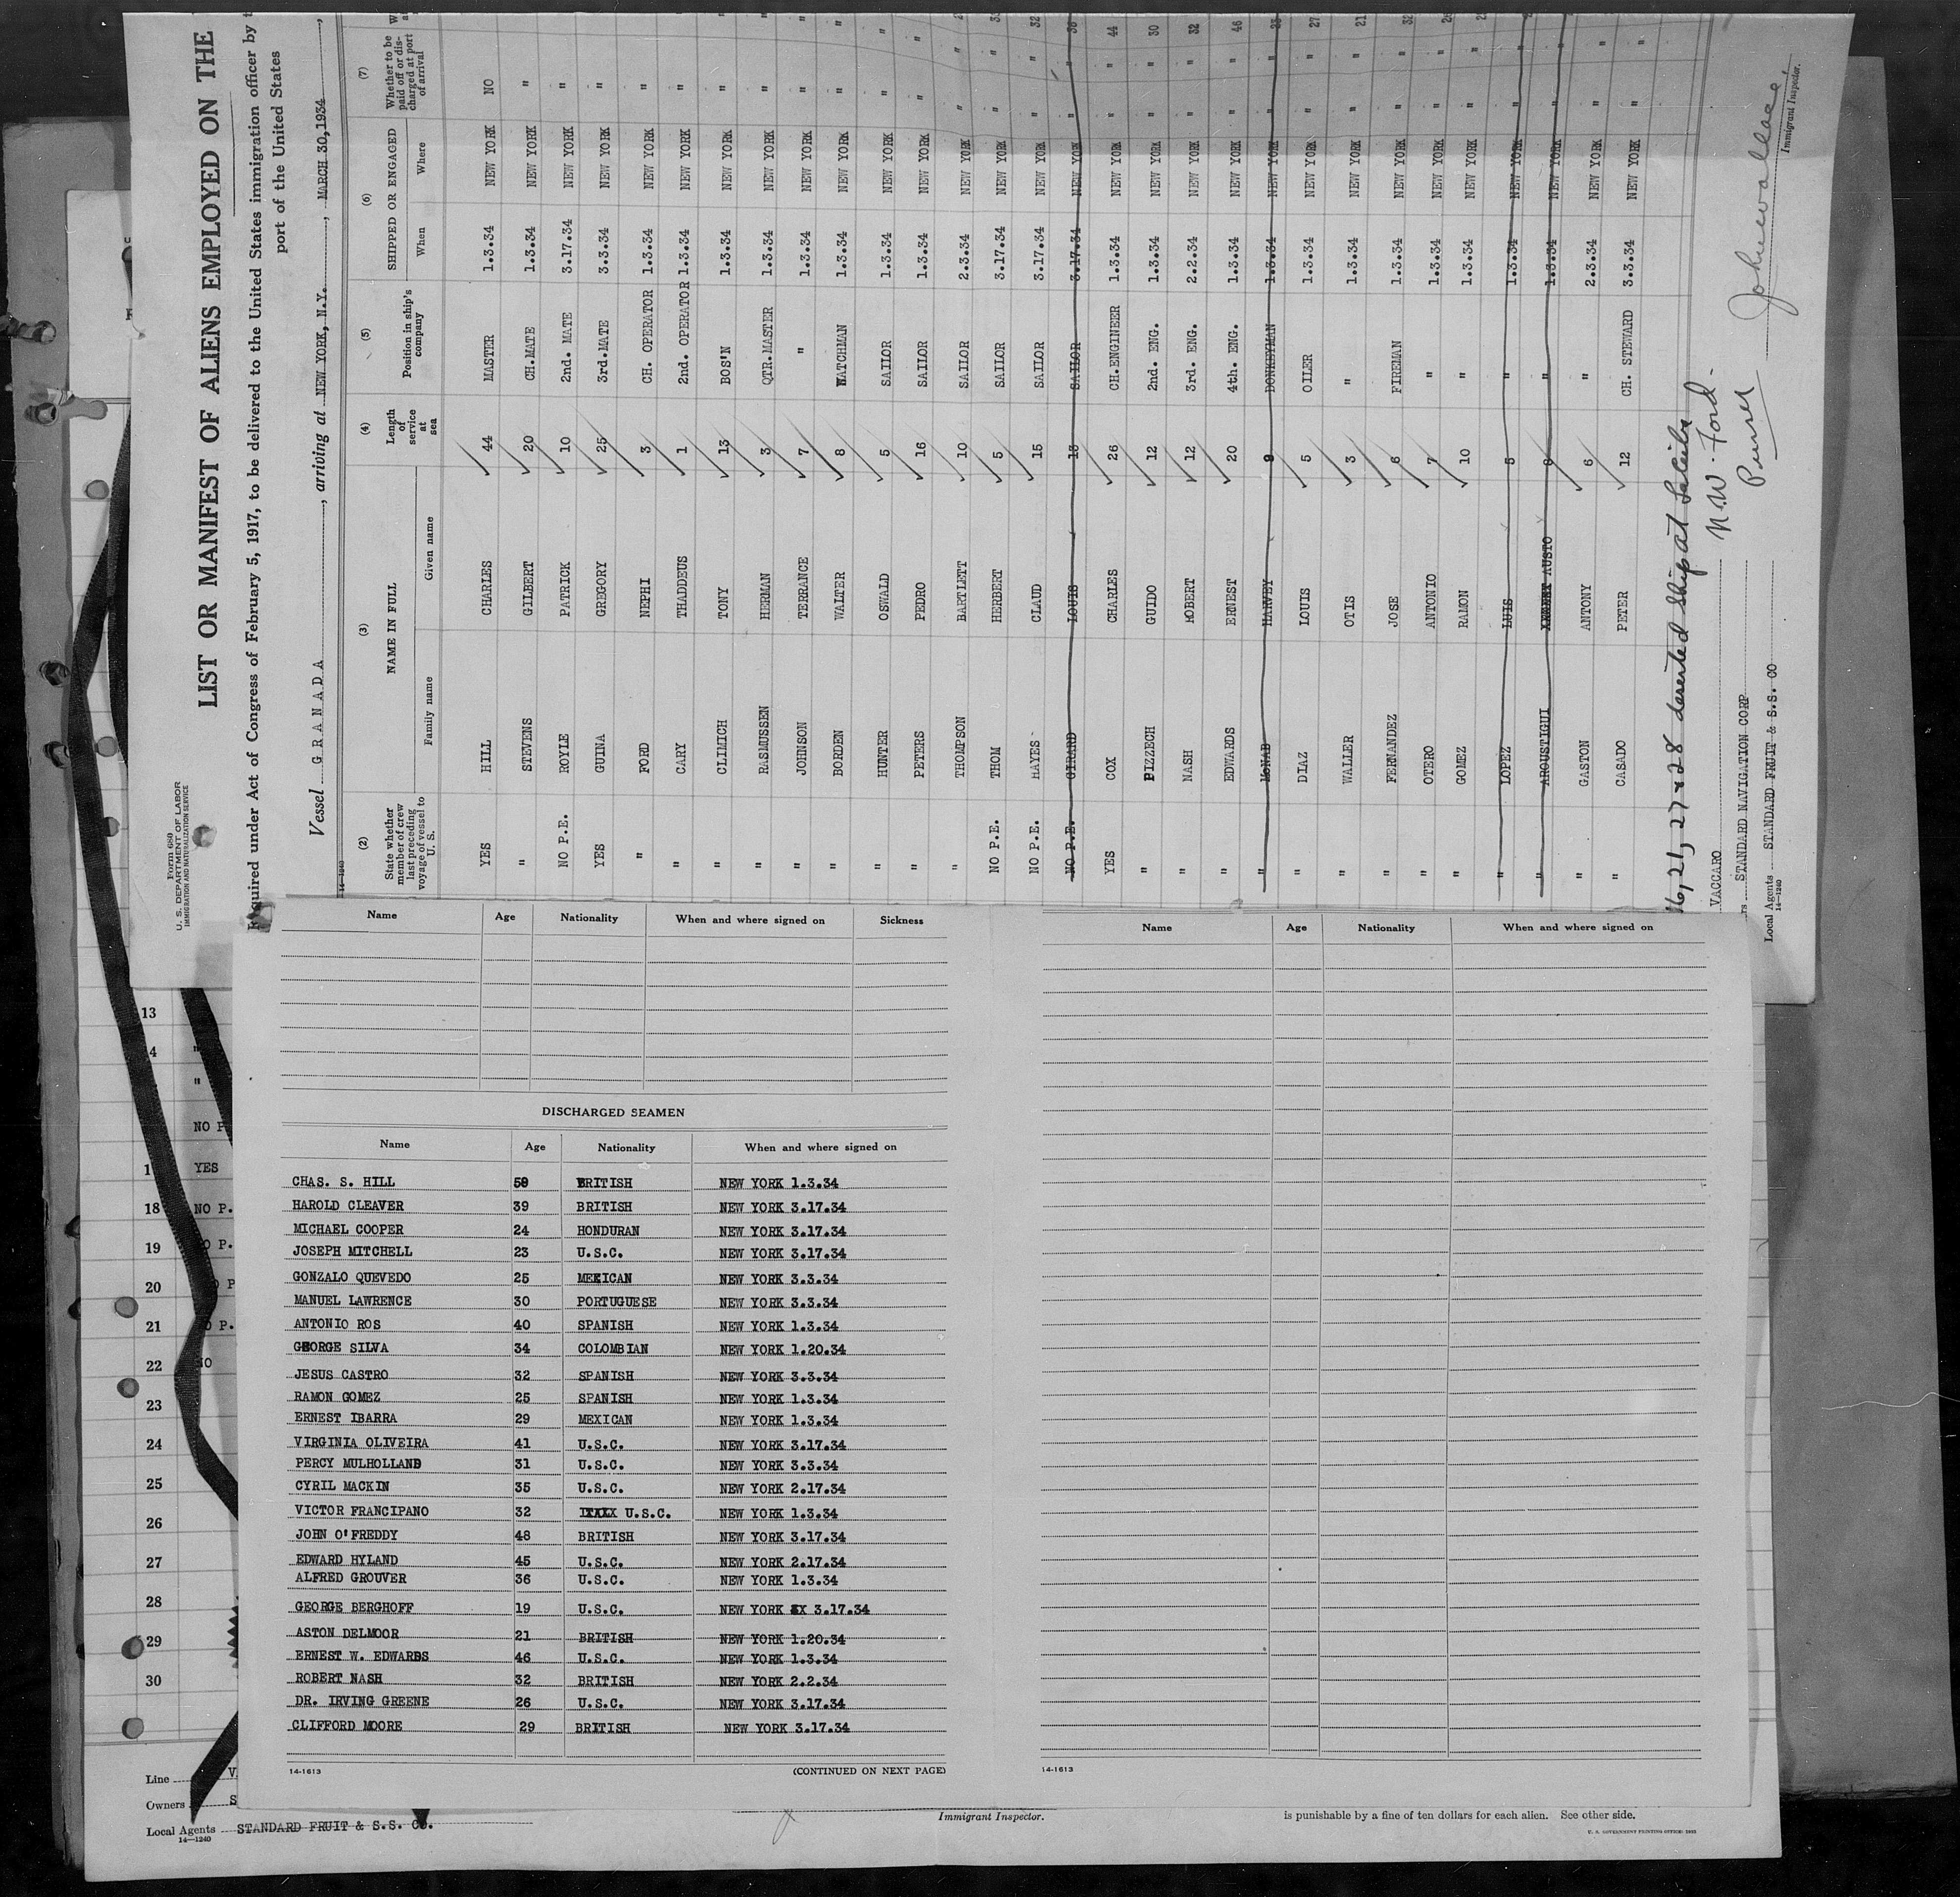 Form 680
U. S. DEPARTMENT OF LABOR
IMMIGRATION AND NATURALIZATION SERVICE
LIST OR MANIFEST OF ALIENS EMPLOYED ON THE
Required under Act of Congress of February 5, 1917, to be delivered to the United States immigration officer by
port of the United States
Vessel GRANADA, arriving at NEW YORK, N.Y., MARCH 30,1934
14-1240
(2) (3) (4) (5) (6) (7)
State whether member of crew last preceding voyage of vessel to U. S. NAME IN FULL Length of service at sea Position in ship's company SHIPPED OR ENGAGED Whether to be paid off or discharged at port of arrival
Family name Given name When Where
YES HILL CHARLES 44 MASTER 1.3.34 NEW YORK NO
" STEVENS GILBERT 20 CH.MATE 1.3.34 NEW YORK "
NO P.E. ROYLE PATRICK 10 2nd. MATE 3.17.34 NEW YORK "
YES GUINA GREGORY 25 3rd.MATE 3.3.34 NEW YORK "
" FORD NEPHI 3 CH. OPERATOR 1.3.34 NEW YORK "
" CARY THADDEUS 1 2nd. OPERATOR 1.3.34 NEW YORK "
" CLIMICH TONY 13 BOS'N 1.3.34 NEW YORK "
" RASMUSSEN HERMAN 3 QTR.MASTER 1.3.34 NEW YORK "
" JOHNSON TERRANCE 7 " 1.3.34 NEW YORK "
" BORDEN WALTER 8 WATCHMAN 1.3.34 NEW YORK "
" HUNTER OSWALD 5 SAILOR 1.3.34 NEW YORK "
" PETERS PEDRO 16 SAILOR 1.3.34 NEW YORK "
" THOMPSON BARTLETT 10 SAILOR 2.3.34 NEW YORK "
NO P.E. THOM HERBERT 5 SAILOR 3.17.34 NEW YORK " 
NO P.E. HAYES CLAUD 15 SAILOR 3.17.34 NEW YORK " 32
NO P.E. GIRARD LOUIS 13 SAILOR 3.17.34 NEW YORK "
YES COX CHARLES 26 CH.ENGINEER 1.3.34 NEW YORK " 44
" PIZZECH GUIDO 12 2nd. ENG. 1.3.34 NEW YORK " 30
" NASH ROBERT 12 3rd. ENG. 2.2.34 NEW YORK " 32
" EDWARDS ERNEST 20 4th. ENG. 1.3.34 NEW YORK " 46
" McNAB HARVEY 9 DONKEYMAN 1.3.34 NEW YORK "
" DIAZ LOUIS 5 OILER 1.3.34 NEW YORK " 27
" WALLER OTIS 3 " 1.3.34 NEW YORK " 21
" FERNANDEZ JOSE 6 FIREMAN 1.3.34 NEW YORK " 32
" OTERO ANTONIO 7 " 1.3.34 NEW YORK " 26
" GOMEZ RAMON 10 " 1.3.34 NEW YORK "
" LOPEZ LUIS 5 " 1.3.34 NEW YORK "
" AROUSTIGUI AUSTO 8 " 1.3.34 NEW YORK "
" GASTON ANTONY 6 " 2.3.34 NEW YORK "
" CASADO PETER 12 CH. STEWARD 3.3.34 NEW YORK "
16, 21, 27 & 28 deserted ship at
VACCARO
STANDARD NAVIGATION CORP
Local Agents STANDARD FRUIT & S.S. CO
14-1240
N.W. Ford -
Purser
John Wallace
Immigrant Inspector.
Name Age Nationality When and where signed on Sickness
DISCHARGED SEAMEN
Name Age Nationality When and where signed on
CHAS. S. HILL 58 BRITISH NEW YORK 1.3.34
HAROLD CLEAVER 39 BRITISH NEW YORK 3.17.34
MICHAEL COOPER 24 HONDURAN NEW YORK 3.17.34
JOSEPH MITCHELL 23 U.S.C. NEW YORK 3.17.34
GONZALO QUEVEDO 25 MEXICAN NEW YORK 3.3.34
MANUEL LAWRENCE 30 PORTUGUESE NEW YORK 3.3.34
ANTONIO ROS 40 SPANISH NEW YORK 1.3.34
GEORGE SILVA 34 COLOMBIAN NEW YORK 1.20.34
JESUS CASTRO 32 SPANISH NEW YORK 3.3.34
RAMON GOMEZ 25 SPANISH NEW YORK 1.3.34
ERNEST IBARRA 29 MEXICAN NEW YORK 1.3.34
VIRGINIA OLIVEIRA 41 U.S.C. NEW YORK 3.17.34
PERCY MULHOLLAND 31 U.S.C. NEW YORK 3.3.34
CYRIL MACKIN 35 U.S.C. NEW YORK 2.17.34
VICTOR FRANCIPANO 32 U.S.C. NEW YORK 1.3.34
JOHN O'FREDDY 48 BRITISH NEW YORK 3.17.34
EDWARD HYLAND 45 U.S.C. NEW YORK 2.17.34
ALFRED GROUVER 36 U.S.C. NEW YORK 1.3.34
GEORGE BERGHOFF 19 U.S.C. NEW YORK 3.17.34
ASTON DELMOOR 21 BRITISH NEW YORK 1.20.34
ERNEST W. EDWARDS 46 U.S.C. NEW YORK 1.3.34
ROBERT NASH 32 BRITISH NEW YORK 2.2.34
DR. IRVING GREENE 26 U.S.C. NEW YORK 3.17.34
CLIFFORD MOORE 29 BRITISH NEW YORK 3.17.34
14-1613 (CONTINUED ON NEXT PAGE)
Name Age Nationality When and where signed on
14-1613
13
"
"
NO P
YES
18 NO P.
19 O P.
20 O P
21 O P.
22 NO
23
24
25
26
27
28
29
30
Line V
Owners S
Local Agents STANDARD FRUIT & S.S. CO.
14-1240
Immigrant Inspector.
is punishable by a fine of ten dollars for each alien. See other side.
U. S. GOVERNMENT PRINTING OFFICE: